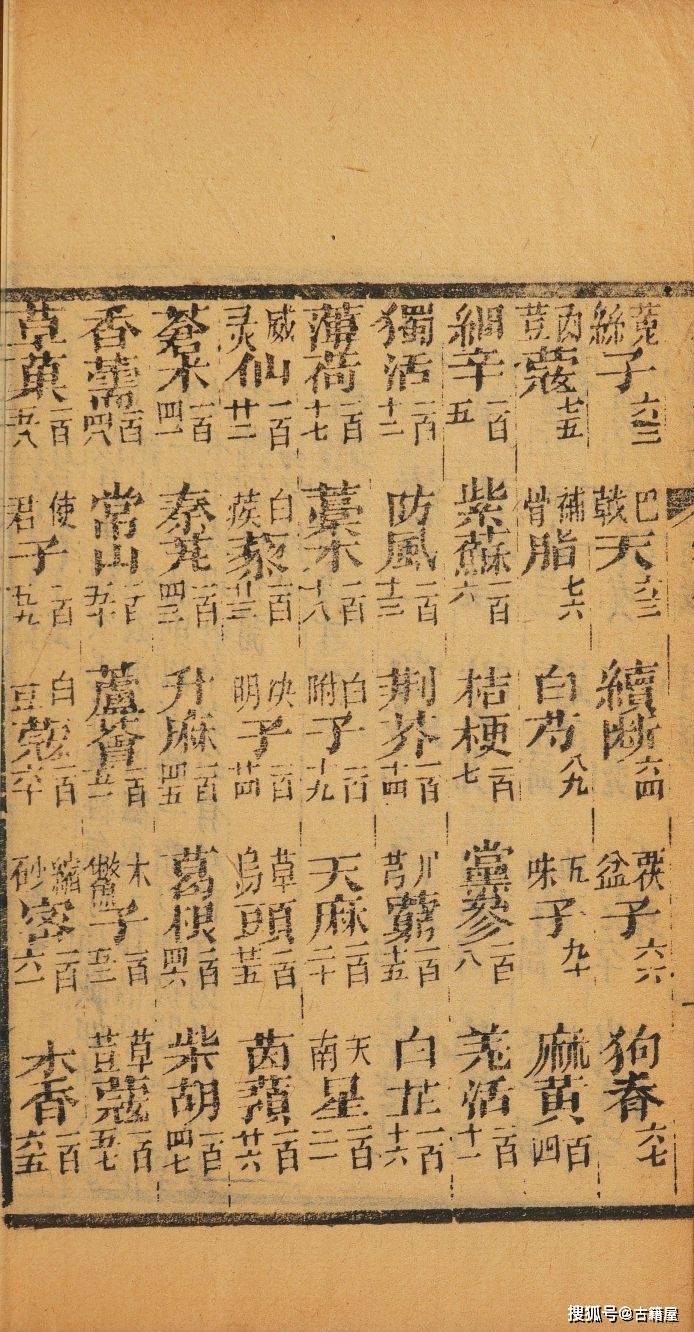 菟絲子六二 巴戟天六三 續斷六四 茯盆子六六 狗春六七
肉荳蔻七五 補骨脂七六 白芍八九 五味子九十 麻黃百四
細辛一百五 紫蘇一百六 桔梗一百七 黨參一百八 羌活一百十一
獨活一百十二 防風一百十三 荆芥一百十四 川芎藭一百十五 白芷一百十六
薄荷一百十七 藁本一百十八 白附子一百十九 天麻一百二十 天南星一百二一
威灵仙一百廿二 白蒺藜一百廿三 决明子一百廿四 草烏頭一百廿五 茵蔯一百廿六
蒼朮一百四一 秦艽一百四三 升麻一百四五 葛根一百四六 柴胡一百四七
香薷一百四八 常山一百五十 蘆薈一百五一 木鱉子一百五二 草荳蔻一百五七
草菓一百五八 使君子一百五九 白豆蔻一百六十 縮砂密一百六一 木香一百六五
搜狐号@古籍屋